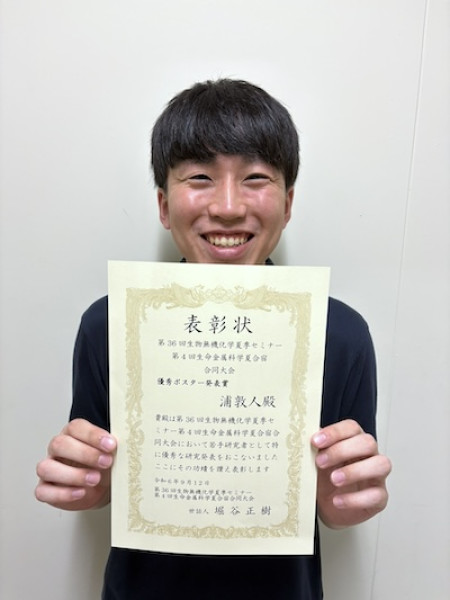 表彰状
第36回生物無機化学夏季セミナー
第4回生命金属科学夏合宿
合同大会
優秀ポスター発表賞
浦敦人殿
貴殿は第36回生物無機化学夏季セ
ミナー第4回生命金属科学夏合宿合
同大会において若手研究者として特
に優秀な研究発表をおこないました
ここにその功績を讃え表彰します
令和6年9月12日
第36回生物無機化学夏季セミナー
第4回生命金属科学夏合宿合同大会
世話人 堀谷正樹